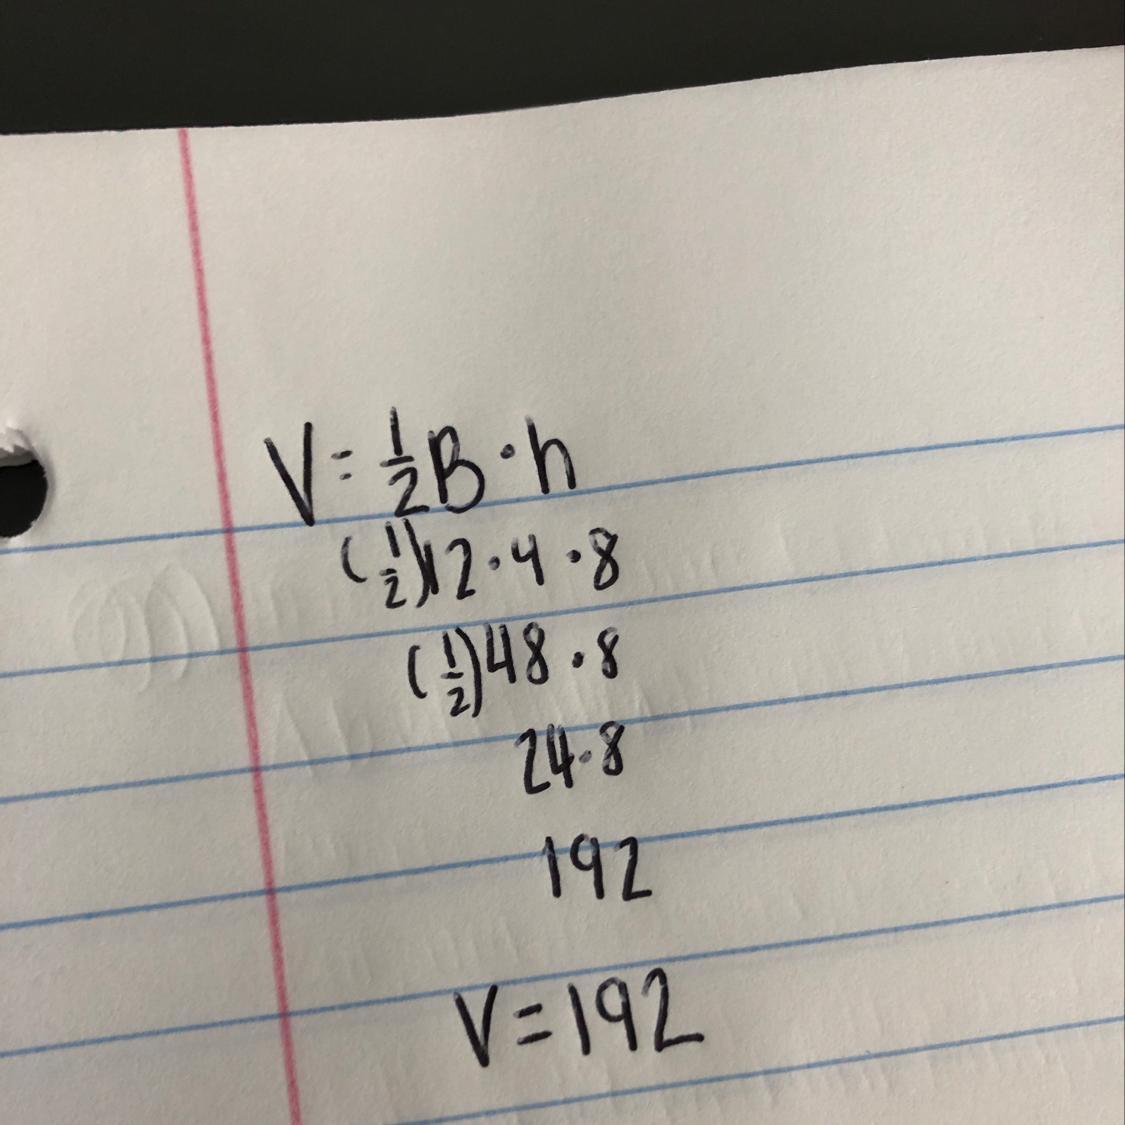 V = 1/2 B · h
(1/2)12 · 4 · 8
(1/2)48 · 8
24 · 8
192
V = 192